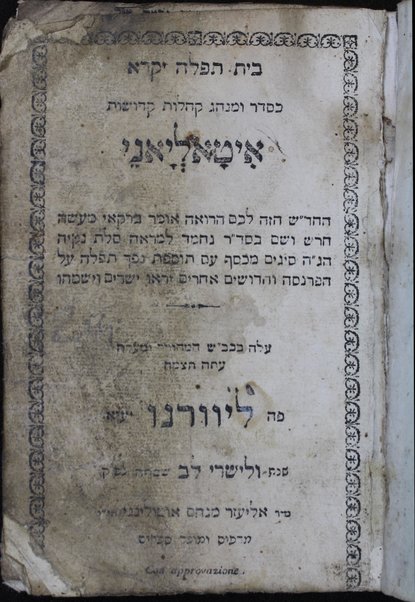 בית תפלה יקרא
כסדר ומנהג קהלות קדושות
אִיטַאלְיָאנִי
החד״ש הזה לכם הרואה אומר ברקאי מעשה
חרש ושם בסד״ר נחמד למראה סלת נקיה
הג״ה סיגים מכסף עם תוספת נפך תפלה על
הפרנסה והדושים אחרים יראו ישרים וישמחו
עלה בכב״ש המהודר ומעדה
עתה הצמח
פה ליוורנו יע״א
שנת ולישרי לב שמחה לפ״ק
אליעזר מנחם אוטולינגי
מדפיס ומוכר ספרים
Con approvazione.